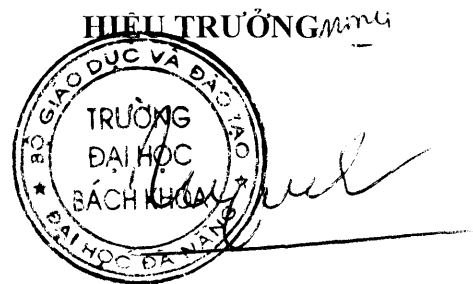 HIỆU TRƯỞNG
BỘ GIÁO DỤC VÀ ĐÀO TẠO
TRƯỜNG
ĐẠI HỌC
BÁCH KHOA
ĐẠI HỌC ĐÀ NẴNG